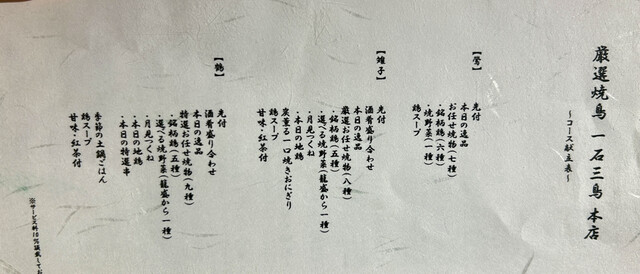 厳選焼鳥 一石三鳥 本店
～コース献立表～
【鶯】
先付
本日の逸品
お任せ焼物（七種）
・銘柄鶏（六種）
・焼野菜（一種）
鶏スープ
【雉子】
先付
酒肴盛り合わせ
本日の逸品
厳選お任せ焼物（八種）
・銘柄鶏（五種）
・選べる焼野菜（籠盛から一種）
・月見つくね
・本日の地鶏
炭薫る一口焼きおにぎり
鶏スープ
甘味・紅茶付
【鶴】
先付
酒肴盛り合わせ
本日の逸品
特選お任せ焼物（九種）
・銘柄鶏（五種）
・選べる焼野菜（籠盛から一種）
・月見つくね
・本日の地鶏
・本日の特選串
季節の土鍋ごはん
鶏スープ
甘味・紅茶付
※サービス料10％頂戴してお